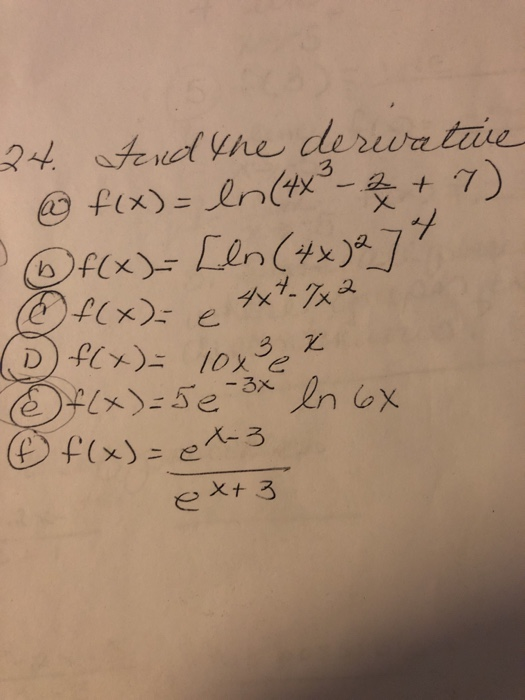 24. Find the derivative
(a) f(x) = ln(4x³ - 2/x + 7)
(b) f(x) = [ln(4x)²]⁴
(c) f(x) = e^4x⁴-7x²
(D) f(x) = 10x³e^x
(e) f(x) = 5e^-3x ln 6x
(f) f(x) = e^x-3
e^x+3